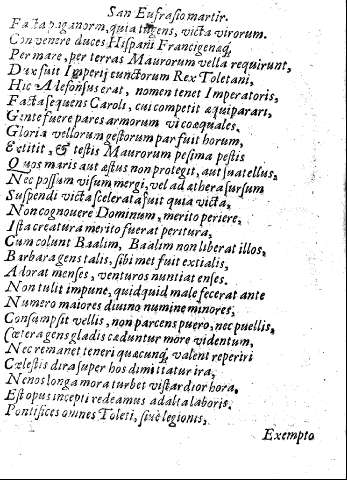 San Eufrasio martir.
Facta paganorm, quia ingens, victa virorum.
Convenere duces Hispani Francigenæq,
Per mare, per terras Maurorum vella requirunt,
Dux fuit Imperij cunctorum Rex Toletani,
Hic Alefonsus erat, nomen tenet Imperatoris,
Facta sequens Caroli, cui competit æquiparari,
Gente fuere pares armorum vi coæquales.
Gloria vellorum gestorum par fuit horum,
Extitit, & testis Maurorum pesima pestis
Quos maris aut æstus non protegit, aut sua tellus,
Nec possum visum mergi, vel ad æthera sursum
Suspendi victa scelerata fuit quia victa,
Non cognouere Dominum, merito periere,
Ista creatura merito fuerat peritura,
Cum colunt Baalim, Baalim non liberat illos,
Barbara gens talis, sibi met fuit extialis,
Adorat menses, venturos nuntiat enses.
Non tulit impune, quidquid male fecerat ante
Numero maiores diuino numine minores,
Consumpsit vellis, non parcens puero, nec puellis,
Cætera gens gladis cæduntur more videntum,
Nec remanet teneri quæcunq, valent reperiri
Cælestis dira super hos dimittatur ira,
Ne nos longa mora turbet vistardior hora,
Est opus incepti redeamus ad alta laboris.
Pontifices omnes Toleti, siue legionis,
Exempto